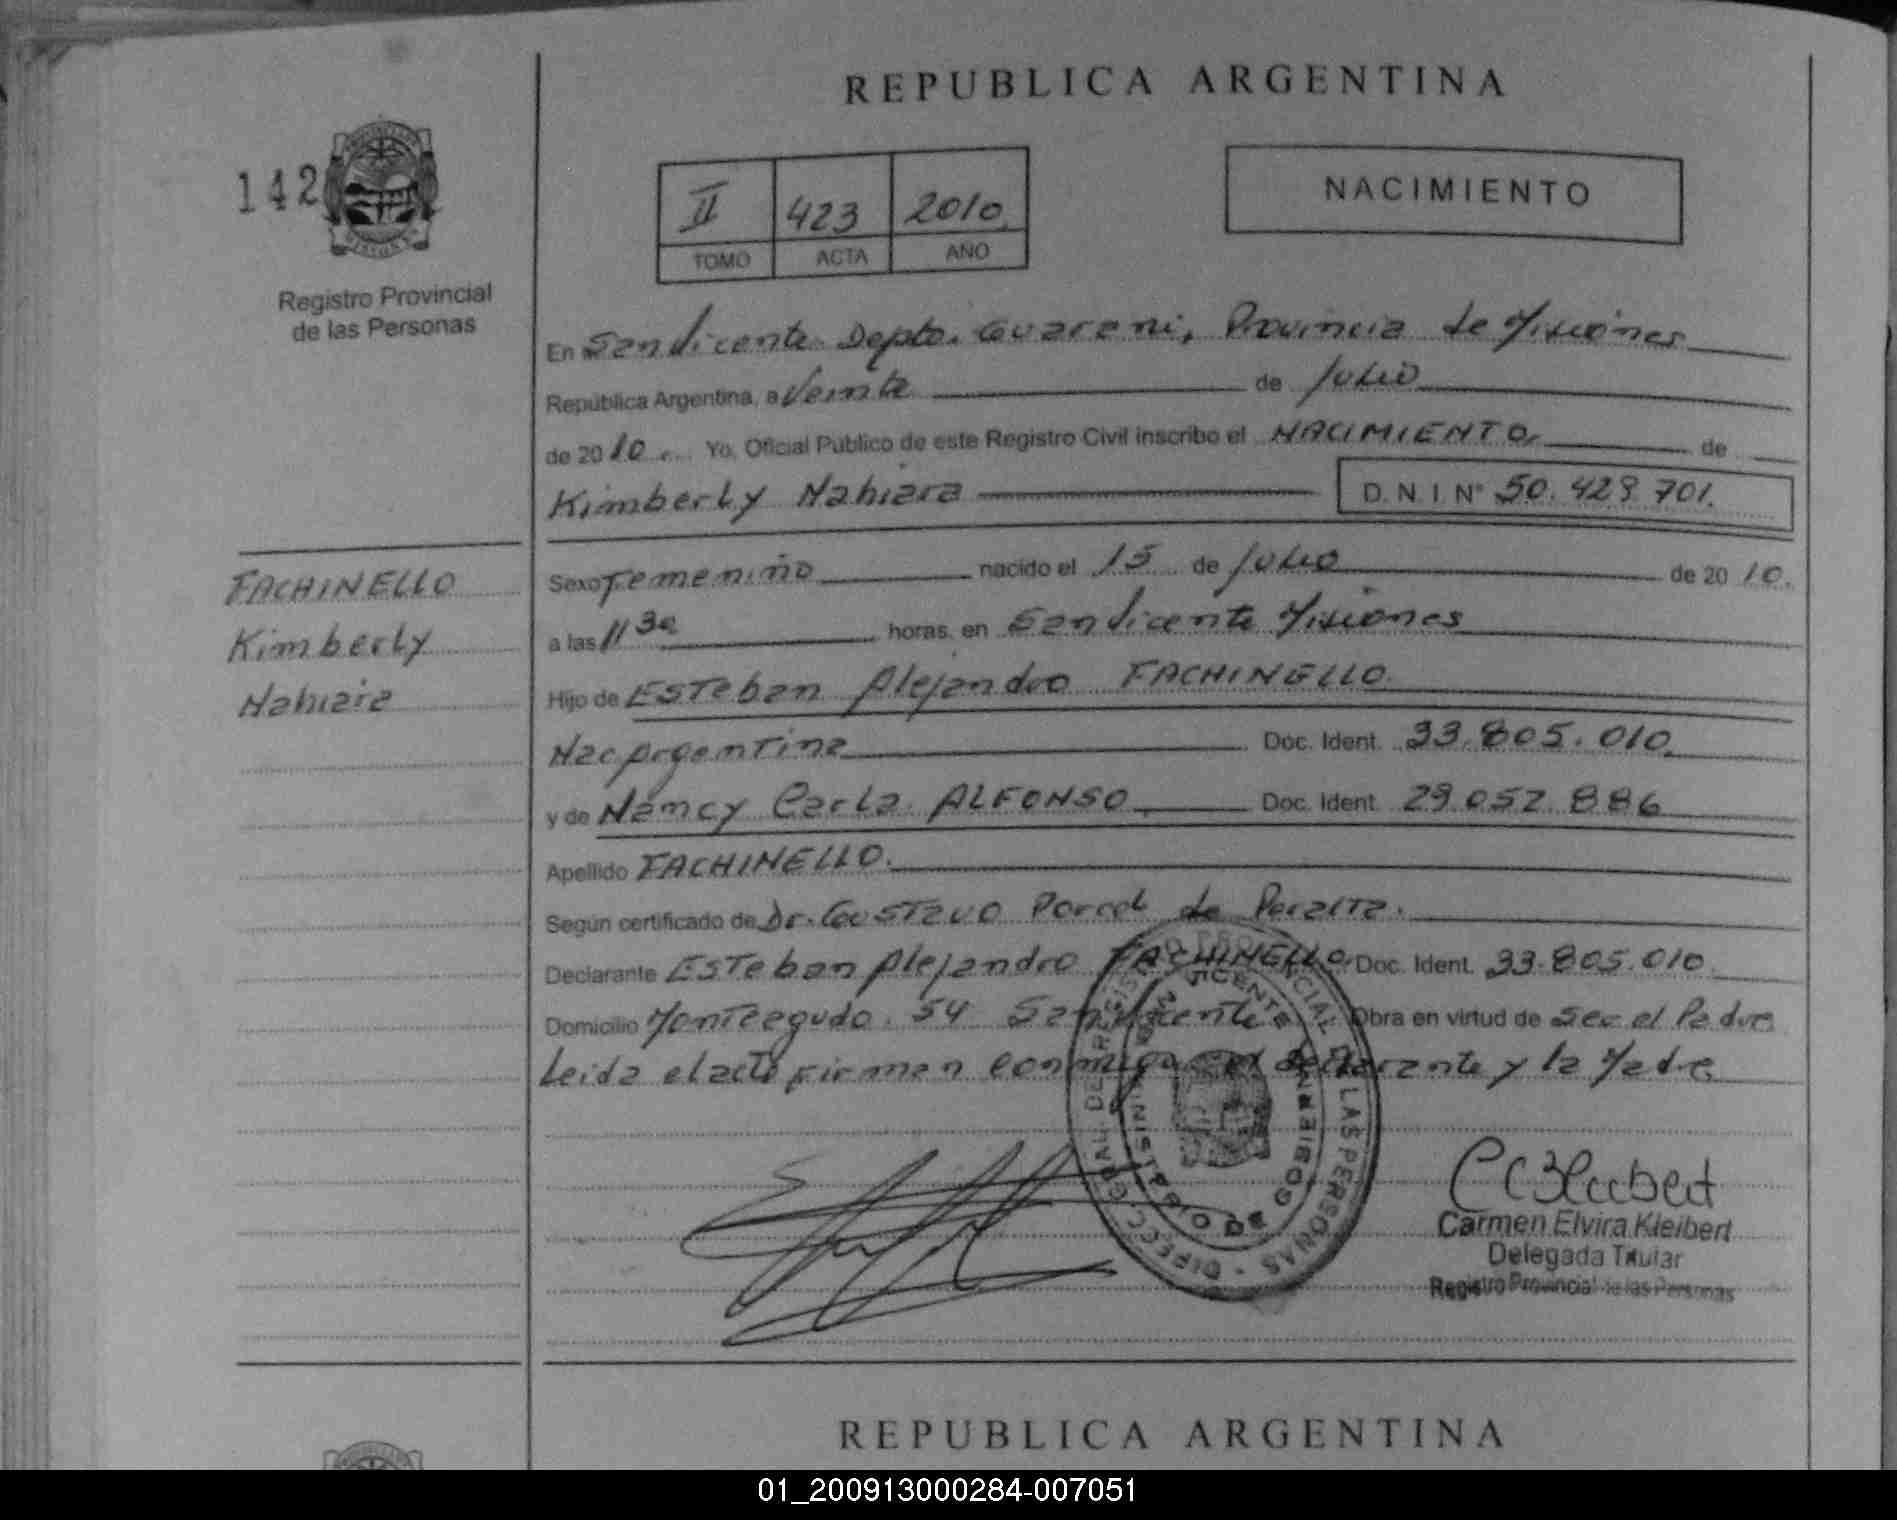 REPUBLICA ARGENTINA
142
II 423 2010
TOMO ACTA AÑO
NACIMIENTO
Registro Provincial
de las Personas
En San Vicente Depto. Guarani, Provincia de Misiones
República Argentina, a Veinte de Julio
de 2010. Yo, Oficial Público de este Registro Civil inscribo el NACIMIENTO. de
Kimberly Nahiara D.N.I. Nº 50.429.701.
FACHINELLO
Kimberly
Nahiara
Sexo Femenino nacido el 15 de Julio de 2010.
a las 11 30 horas, en San Vicente Misiones
Hijo de Esteban Alejandro FACHINELLO.
Nac Argentina Doc. Ident. 33.805.010.
y de Nancy Carla ALFONSO Doc. Ident. 29.052.886
Apellido FACHINELLO.
Según certificado de Dr. Gustavo Porcel de Peralta.
Declarante Esteban Alejandro FACHINELLO. Doc. Ident. 33.805.010
Domicilio Monteagudo 54 San Vicente Obra en virtud de Ser el Padre
Leida el acta firman conmigo el declarante y la Madre
DIREC. GRAL. DE REGISTRO PROVINCIAL DE LAS PERSONAS
SAN VICENTE MINISTERIO DE GOBIERNO
Carmen Elvira Kleibert
Delegada Titular
Registro Provincial de las Personas
REPUBLICA ARGENTINA
01_200913000284-007051